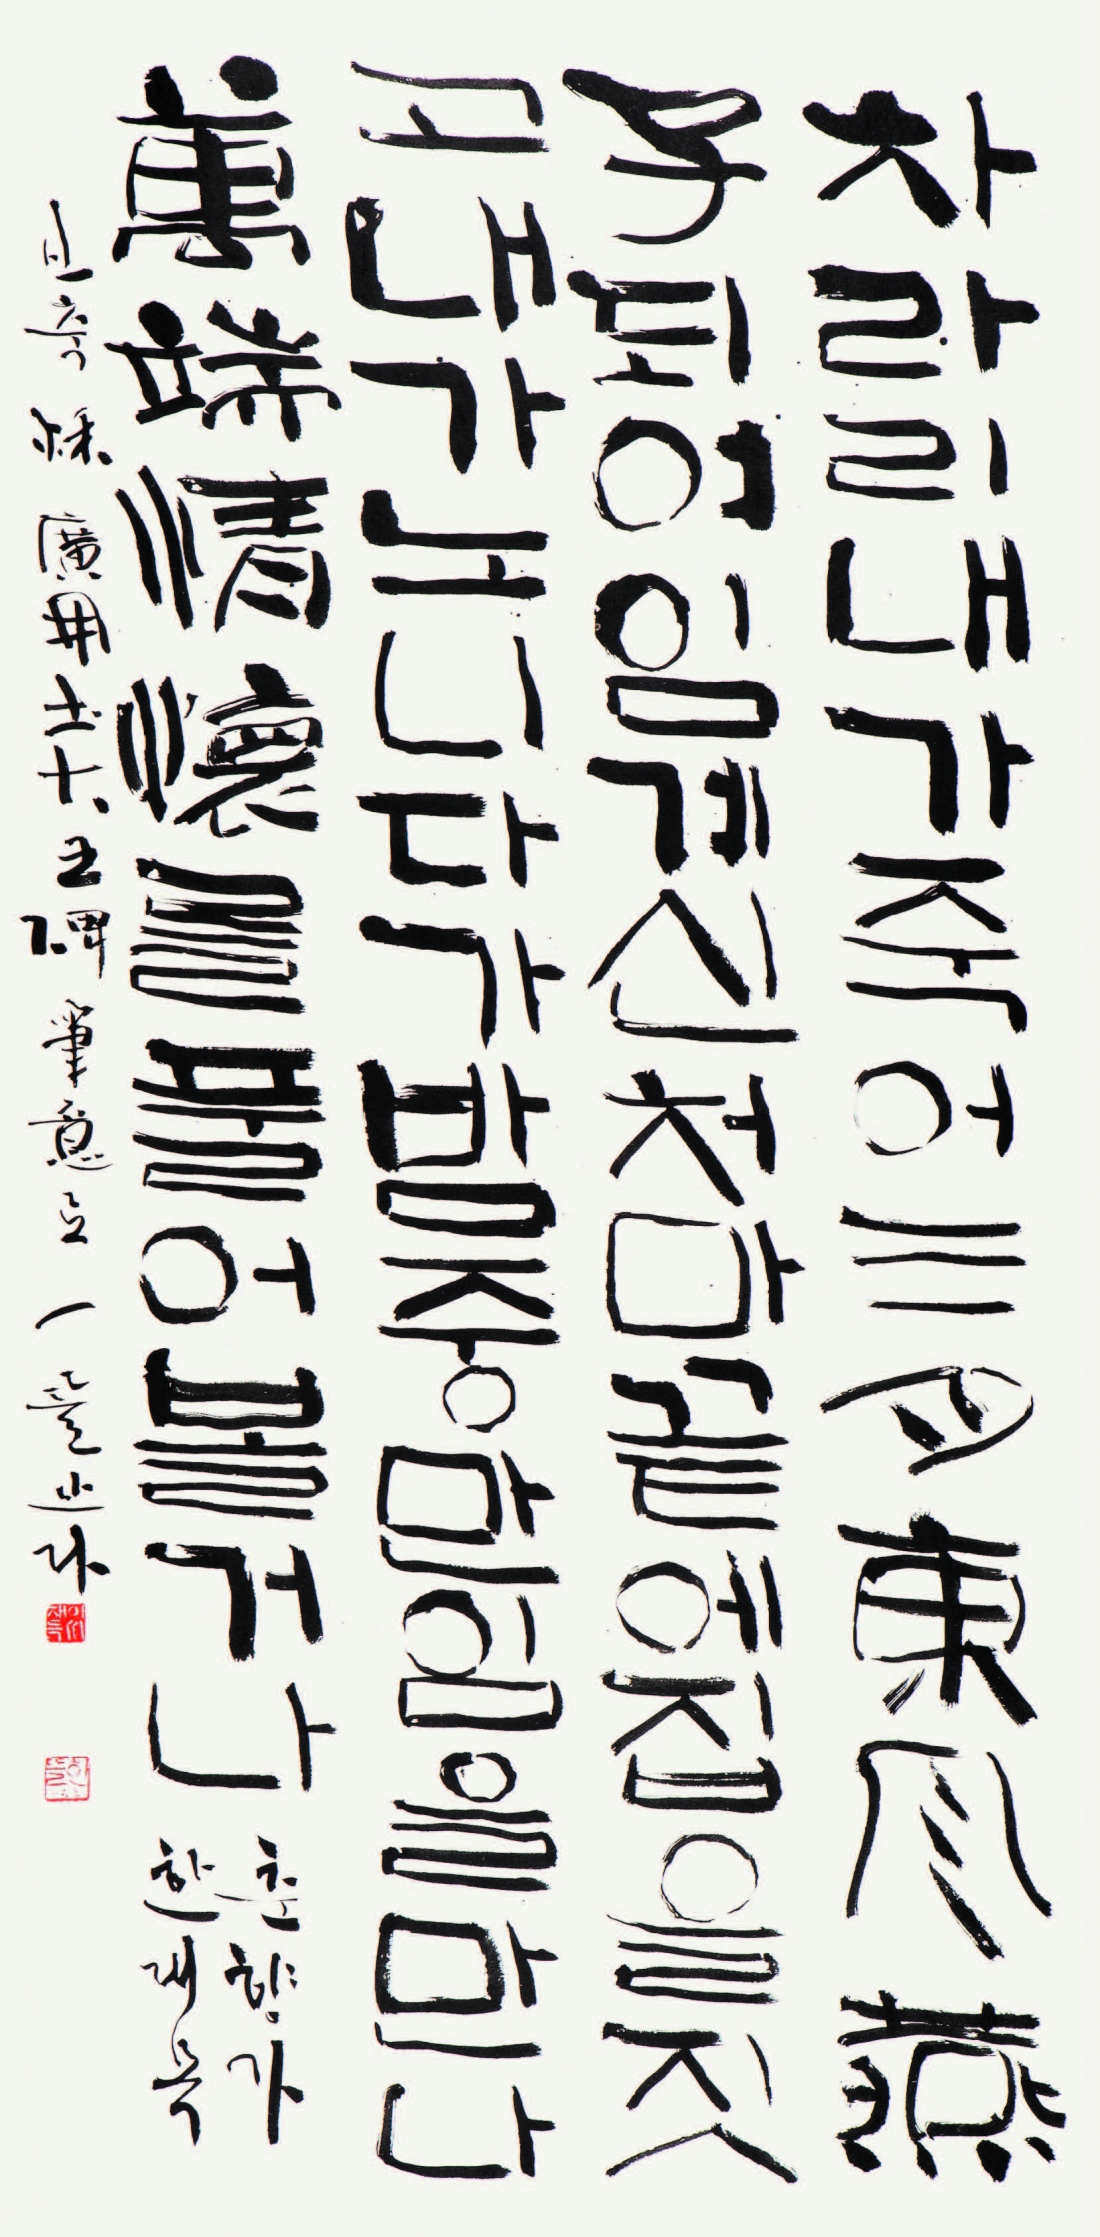 차라리내가죽어三月東風燕
子되여임계신처마끝에집을짓
고내가노니다가밤중만임을만나
萬端情懷를풀어볼거나
춘향가
한대목
秋 廣開土大王碑 筆意로